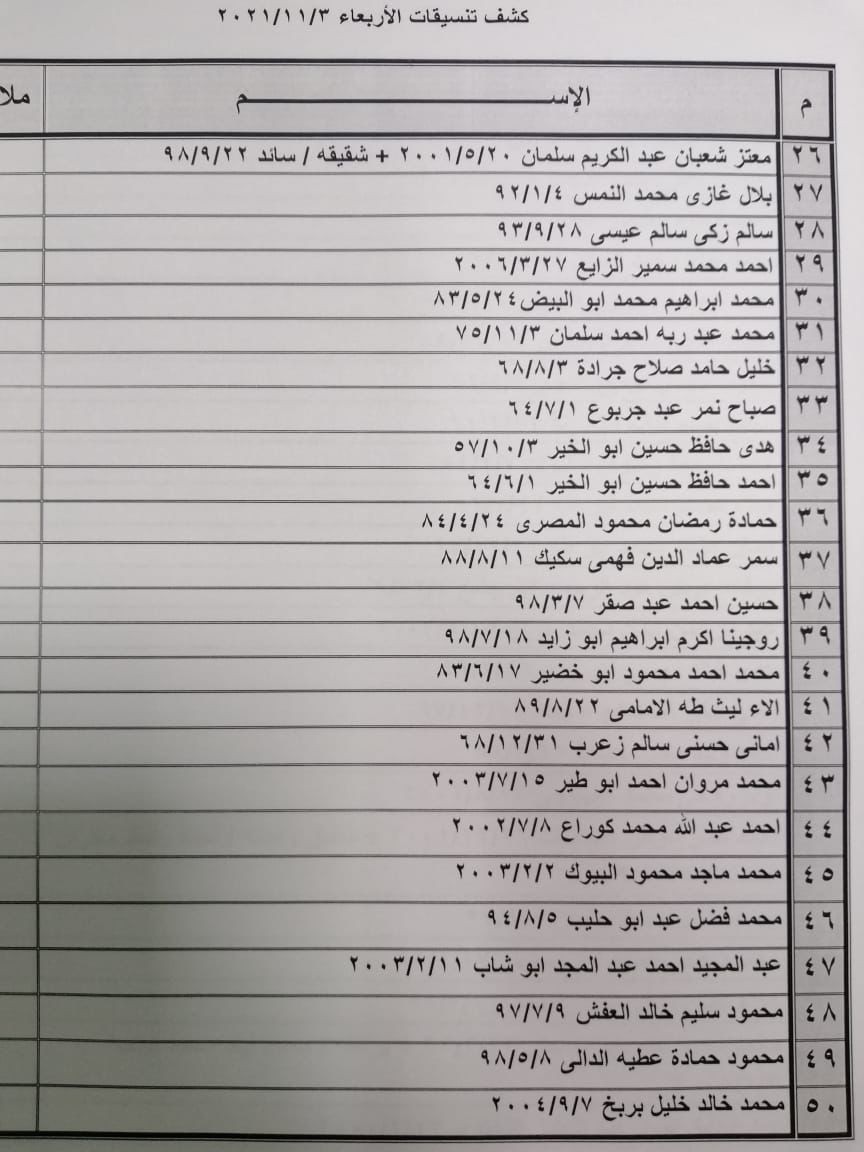 كشف تنسيقات الأربعاء ٢٠٢١/١١/٣
م الإســـــــــــــم ملا
٢٦ معتز شعبان عبد الكريم سلمان ٢٠٠١/٥/٢٠ + شقيقه / سائد ٩٨/٩/٢٢
٢٧ بلال غازى محمد النمس ٩٢/١/٤
٢٨ سالم زكى سالم عيسى ٩٣/٩/٢٨
٢٩ احمد محمد سمير الزايع ٢٠٠٦/٣/٢٧
٣٠ محمد ابراهيم محمد ابو البيض ٨٣/٥/٢٤
٣١ محمد عبد ربه احمد سلمان ٧٥/١١/٣
٣٢ خليل حامد صلاح جرادة ٦٨/٨/٣
٣٣ صباح نمر عبد جربوع ٦٤/٧/١
٣٤ هدى حافظ حسين ابو الخير ٥٧/١٠/٣
٣٥ احمد حافظ حسين ابو الخير ٦٤/٦/١
٣٦ حمادة رمضان محمود المصرى ٨٤/٤/٢٤
٣٧ سمر عماد الدين فهمى سكيك ٨٨/٨/١١
٣٨ حسين احمد عبد صقر ٩٨/٣/٧
٣٩ روجينا اكرم ابراهيم ابو زايد ٩٨/٧/١٨
٤٠ محمد احمد محمود ابو خضير ٨٣/٦/١٧
٤١ الاء ليث طه الامامى ٨٩/٨/٢٢
٤٢ امانى حسنى سالم زعرب ٦٨/١٢/٣١
٤٣ محمد مروان احمد ابو طير ٢٠٠٣/٧/١٥
٤٤ احمد عبد الله محمد كوراع ٢٠٠٢/٧/٨
٤٥ محمد ماجد محمود البيوك ٢٠٠٣/٢/٢
٤٦ محمد فضل عبد ابو حليب ٩٤/٨/٥
٤٧ عبد المجيد احمد عبد المجد ابو شاب ٢٠٠٣/٢/١١
٤٨ محمود سليم خالد العفش ٩٧/٧/٩
٤٩ محمود حمادة عطيه الدالى ٩٨/٥/٨
٥٠ محمد خالد خليل بربخ ٢٠٠٤/٩/٧